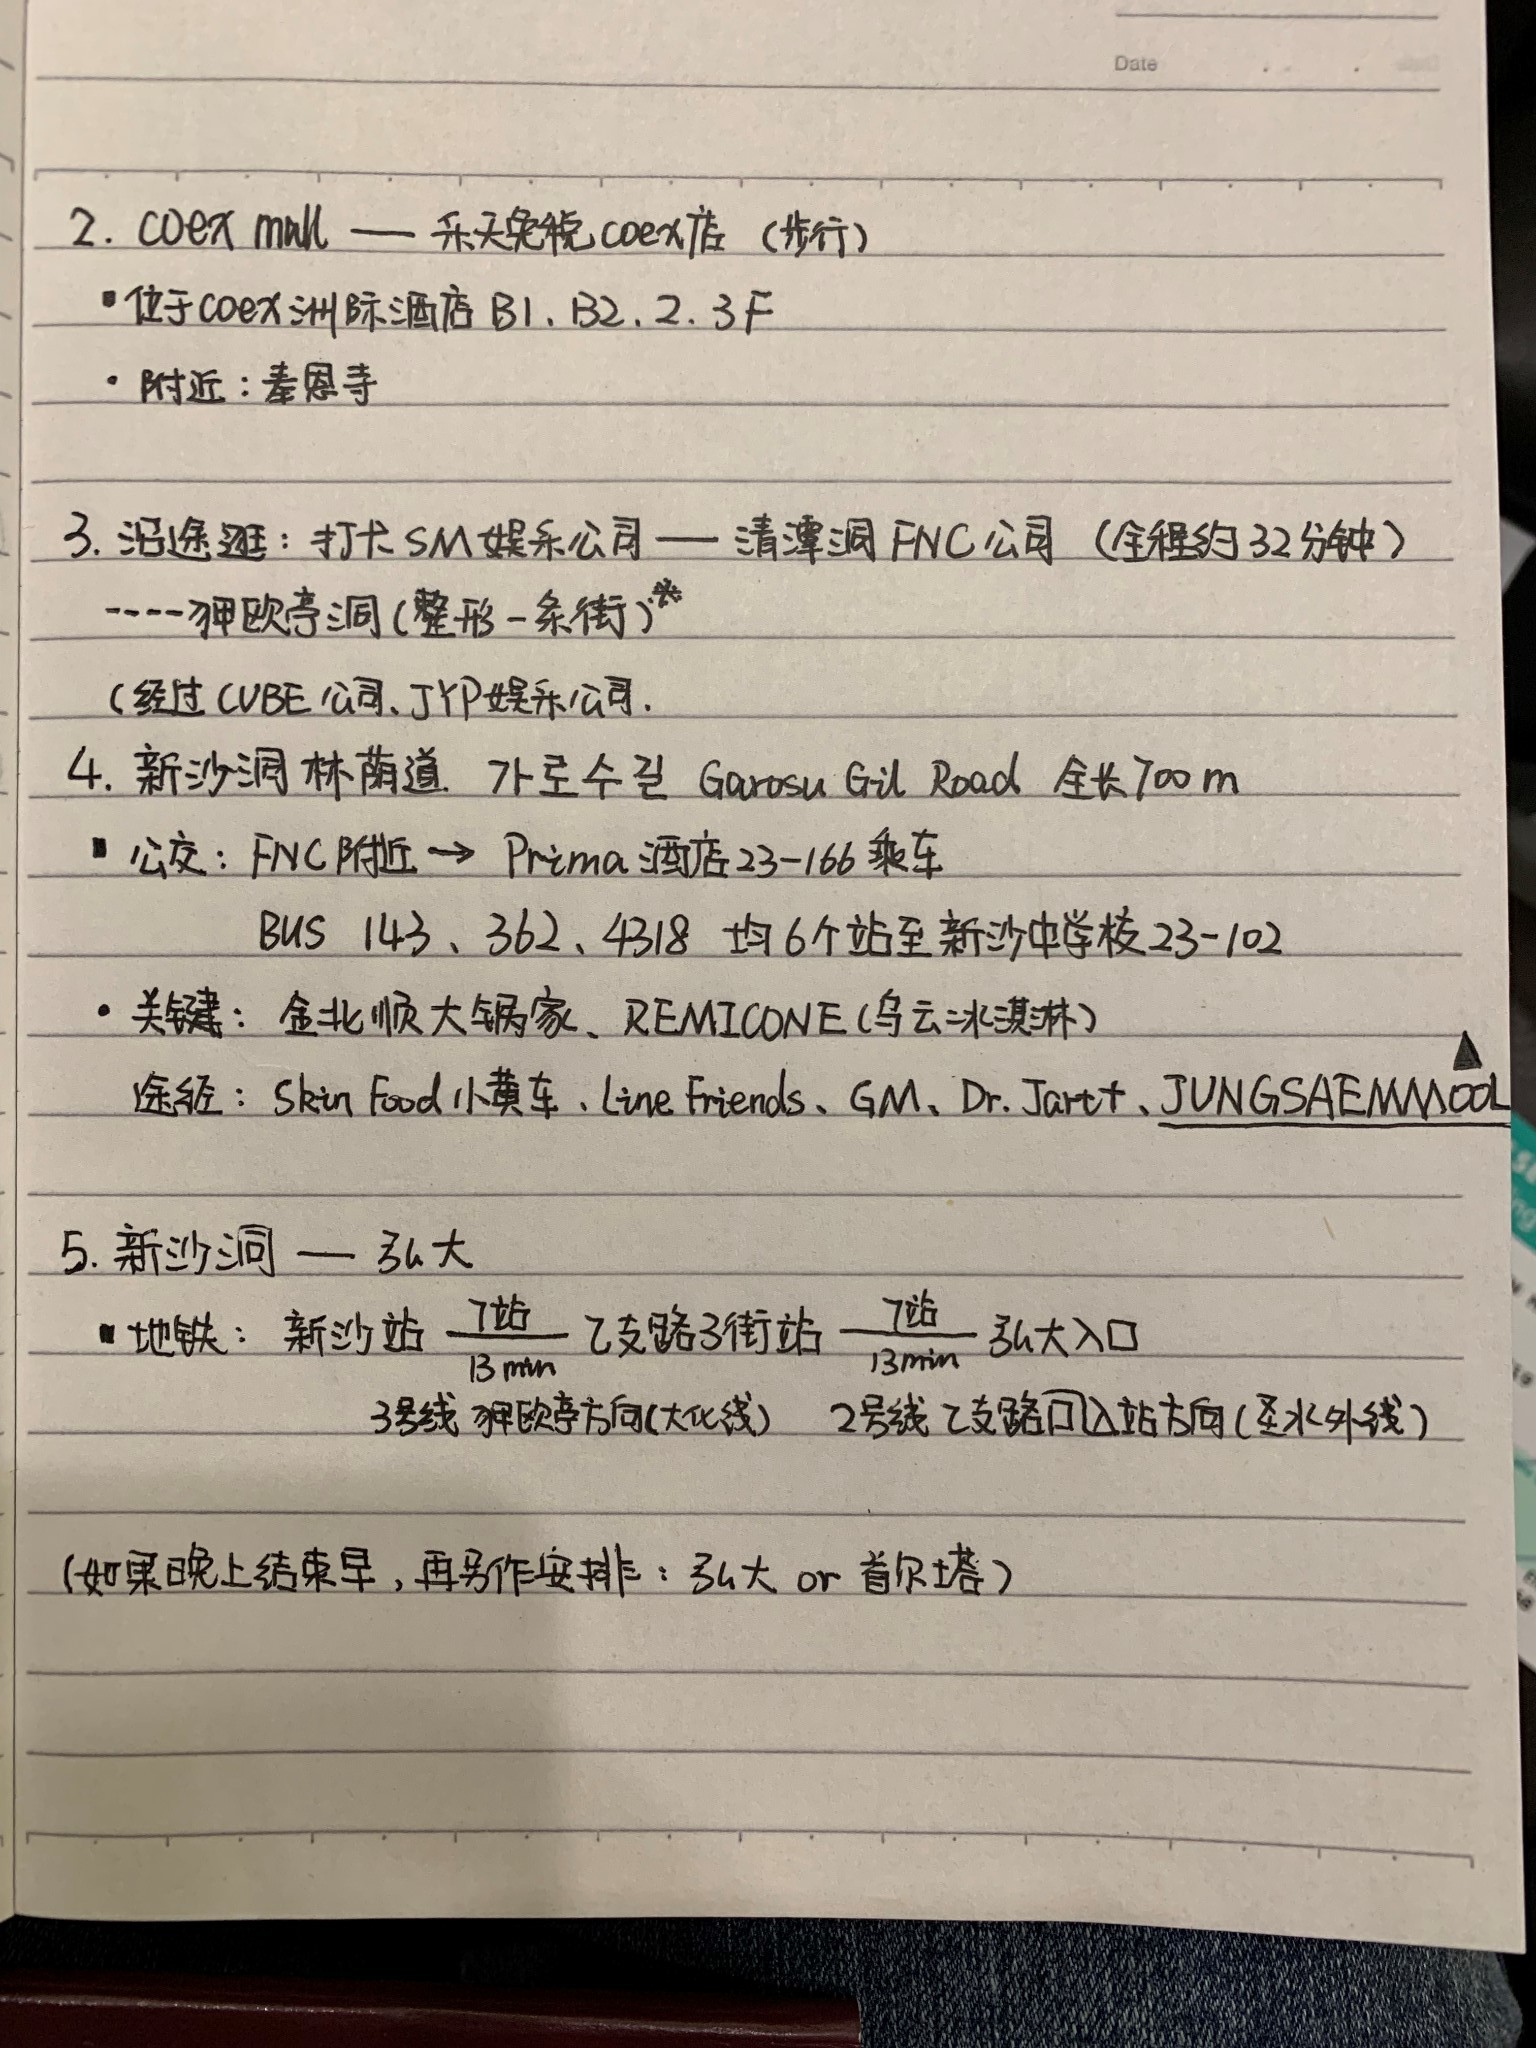 Date
2. coex mall — 乐天免税coex店 (步行)
▪位于coex洲际酒店 B1、B2、2、3F
· 附近：奉恩寺
3. 沿途逛：打卡SM娱乐公司 — 清潭洞FNC公司 (全程约32分钟)
----狎欧亭洞(整形一条街)※
(经过CUBE公司、JYP娱乐公司.
4. 新沙洞林荫道 가로수길 Garosu Gil Road 全长700m
▪ 公交：FNC附近→ Prima酒店23-166乘车
BUS 143、362、4318 均6个站至新沙中学校23-102
• 关键：金北顺大锅家、REMICONE(乌云冰淇淋)
途经：Skin Food小黄车、Line Friends、GM、Dr. Jart+、JUNGSAEMMOOL ▲
5. 新沙洞 — 弘大
▪地铁：新沙站 7站 13min 乙支路3街站 7站 13min 弘大入口
3号线 狎欧亭方向(大化线) 2号线 乙支路口入站方向(圣水外线)
(如果晚上结束早，再另作安排：弘大 or 首尔塔)